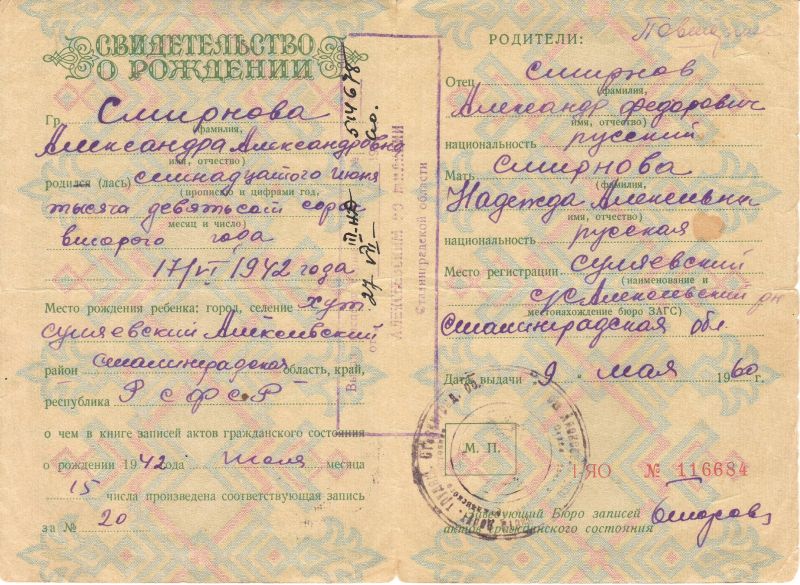 СВИДЕТЕЛЬСТВО
О РОЖДЕНИИ
Гр. Смирнова
(фамилия,
Александра Александровна
имя, отчество)
родился (лась) семнадцатого июня
(прописью и цифрами год,
тысяча девятьсот сорок
месяц и число)
второго года
17/VI 1942 года
Место рождения ребенка: город, селение хут
Суляевский Алексеевский
район Сталинградская область, край,
республика РСФСР
о чем в книге записей актов гражданского состояния
о рождении 1942 года Июля месяца
15 числа произведена соответствующая запись
за № 20
III-НД № 514698
27 VII
Сталинградской области
РОДИТЕЛИ:
Отец Смирнов
(фамилия,
Александр Федорович
имя, отчество)
национальность русский
Мать Смирнова
(фамилия,
Надежда Алексеевна
имя, отчество)
национальность русская
Место регистрации Суляевский
(наименование и
с/с Алексеевский рн
местонахождение бюро ЗАГС)
Сталинградская обл
Дата выдачи „9“ мая 1960 г.
М. П.
I-ЯО № 116684
Заведующий Бюро записей
актов гражданского состояния